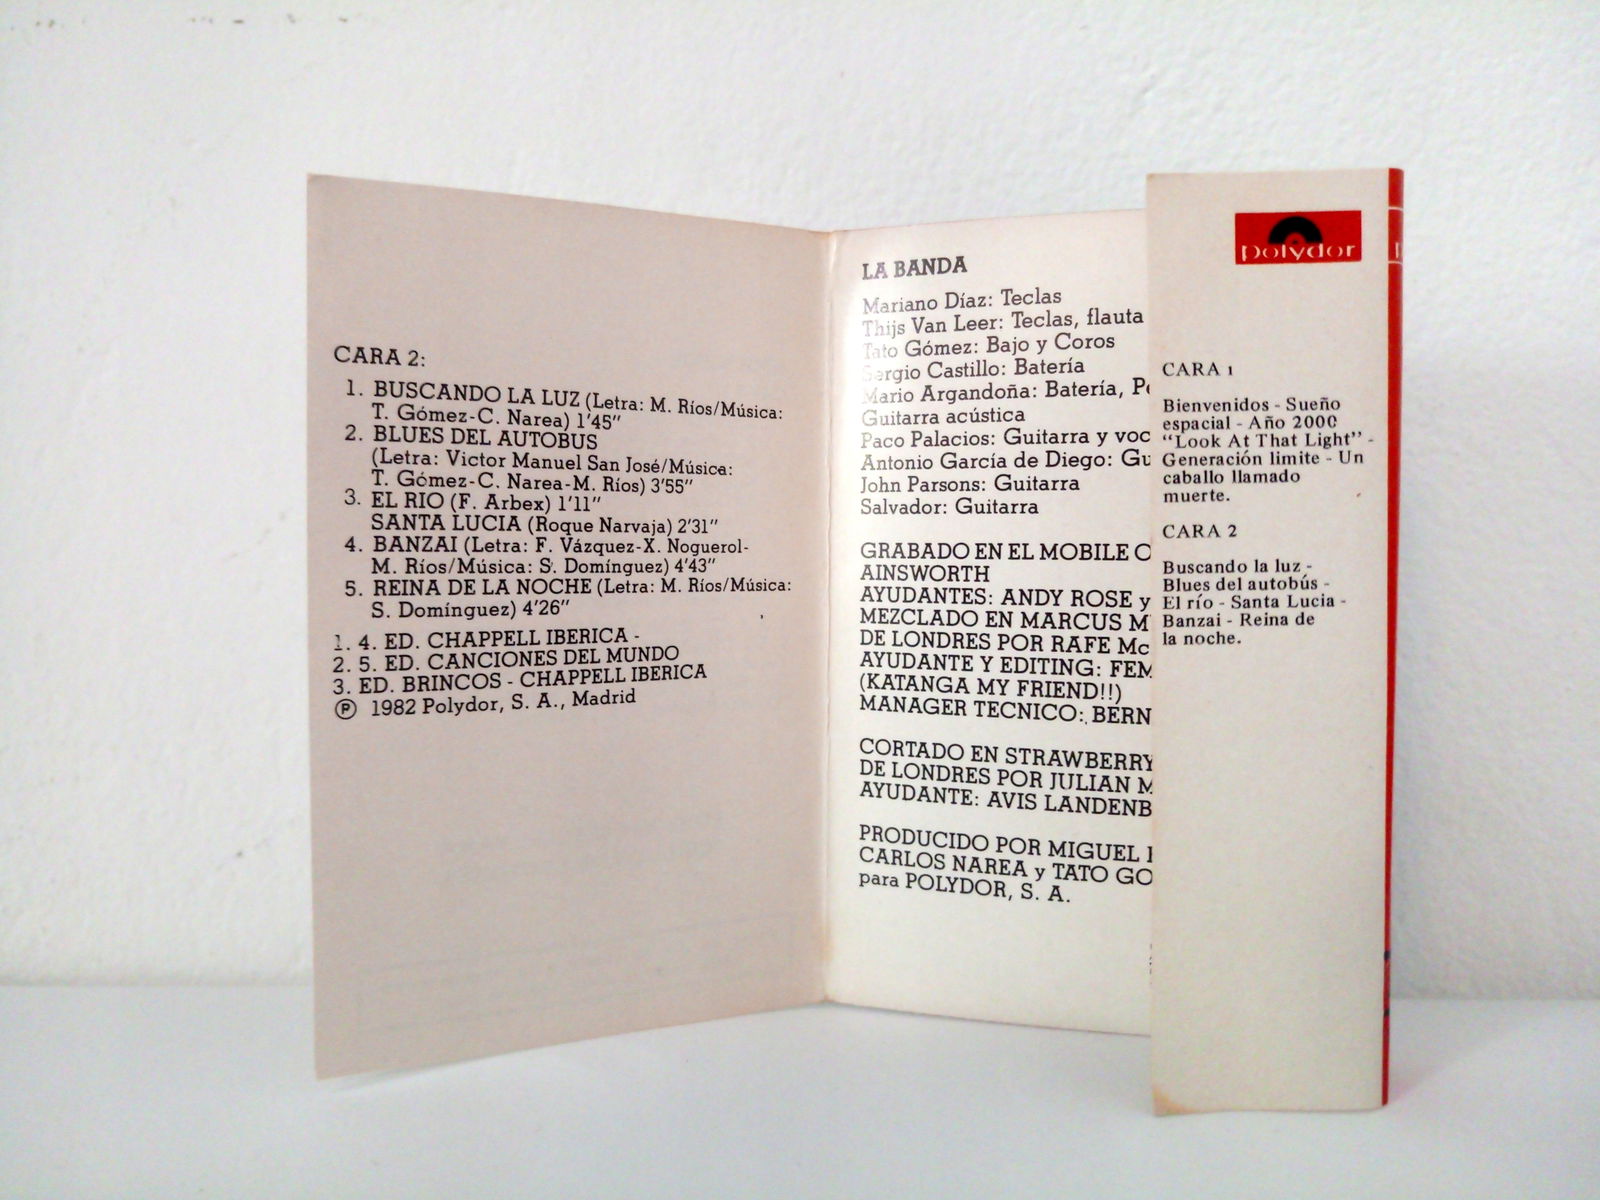 CARA 2:
1. BUSCANDO LA LUZ (Letra: M. Ríos/Música:
T. Gómez-C. Narea) 1'45"
2. BLUES DEL AUTOBUS
(Letra: Victor Manuel San José/Música:
T. Gómez-C. Narea-M. Ríos) 3'55"
3. EL RIO (F. Arbex) 1'11"
SANTA LUCIA (Roque Narvaja) 2'31"
4. BANZAI (Letra: F. Vázquez-X. Noguerol-
M. Ríos/Música: S. Domínguez) 4'43"
5. REINA DE LA NOCHE (Letra: M. Ríos/Música:
S. Domínguez) 4'26"
1. 4. ED. CHAPPELL IBERICA -
2. 5. ED. CANCIONES DEL MUNDO
3. ED. BRINCOS - CHAPPELL IBERICA
Ⓟ 1982 Polydor, S. A., Madrid
LA BANDA
Mariano Díaz: Teclas
Thijs Van Leer: Teclas, flauta
Tato Gómez: Bajo y Coros
Sergio Castillo: Batería
Mario Argandoña: Batería,
Guitarra acústica
Paco Palacios: Guitarra y voc
Antonio García de Diego: Gu
John Parsons: Guitarra
Salvador: Guitarra
GRABADO EN EL MOBILE
AINSWORTH
AYUDANTES: ANDY ROSE y
MEZCLADO EN MARCUS
DE LONDRES POR RAFE Mc
AYUDANTE Y EDITING:
(KATANGA MY FRIEND!!)
MANAGER TECNICO: BERN
CORTADO EN STRAWBERRY
DE LONDRES POR JULIAN
AYUDANTE: AVIS LANDENB
PRODUCIDO POR MIGUEL
CARLOS NAREA y TATO GO
para POLYDOR, S. A.
polydor
CARA 1
Bienvenidos - Sueño
espacial - Año 2000
"Look At That Light" -
Generación limite - Un
caballo llamado
muerte.
CARA 2
Buscando la luz -
Blues del autobús -
El río - Santa Lucia -
Banzai - Reina de
la noche.